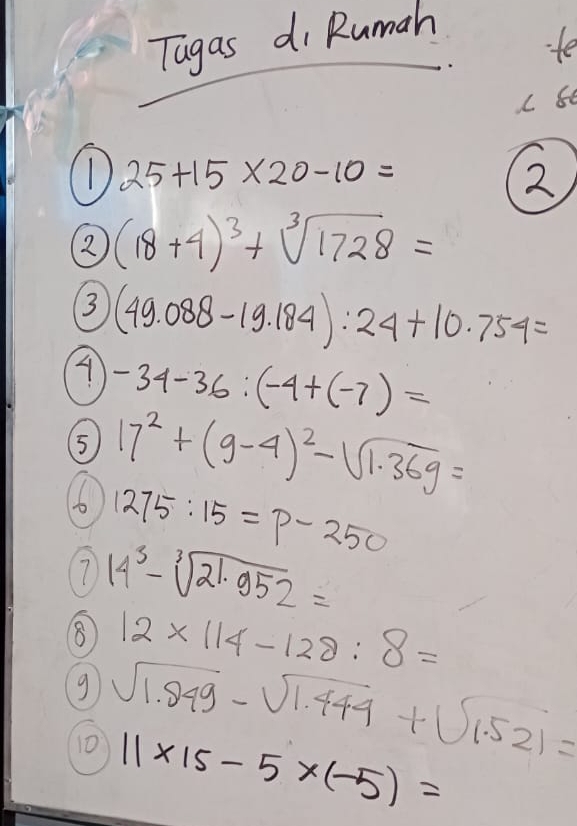 Tugas di Rumah
① 25+15 ×20-10 =
② (18+4)³ + ∛1728 =
③ (49.088-19.184) : 24+10.754=
④ -34-36 : (-4+(-7) =
⑤ 17² + (9-4)² - √1.369 =
⑥ 1275 : 15 = P - 250
⑦ 14³ - ∛21.952 =
⑧ 12 × 114 - 128 : 8 =
⑨ √1.849 - √1.444 + √1.521 =
⑩ 11 × 15 - 5 × (-5) =
②